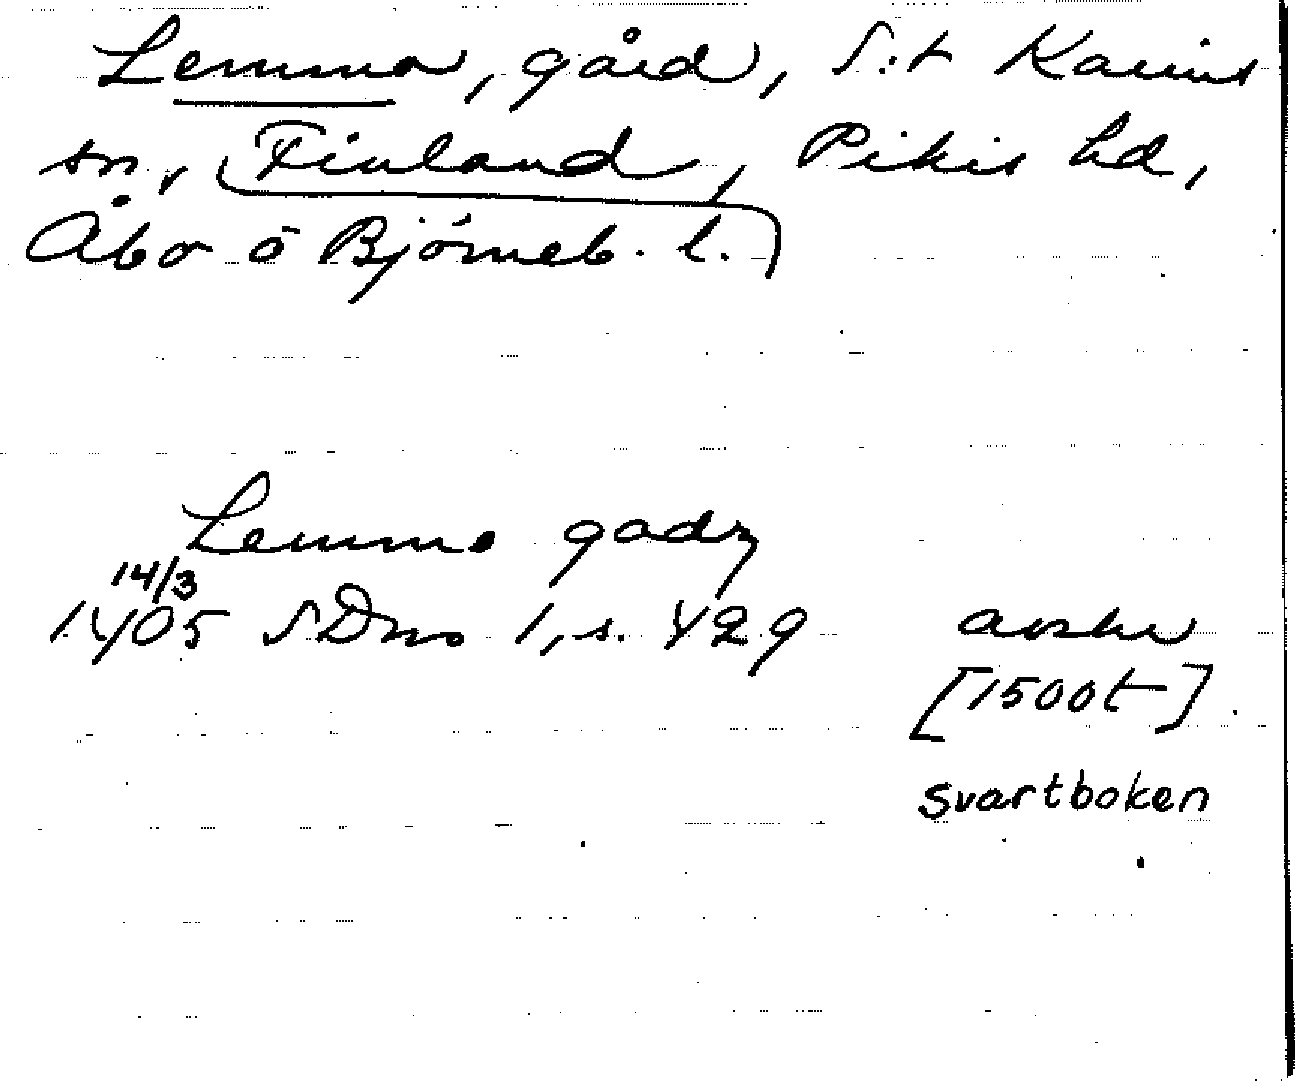 Lemmo, gård, S:t Karins
sn, Finland, Pikis hd,
Åbo o Bjørneb. l.
Lemmo gadz
14/3
1405 SDns 1, s. 429 avskr
[1500t].
svartboken